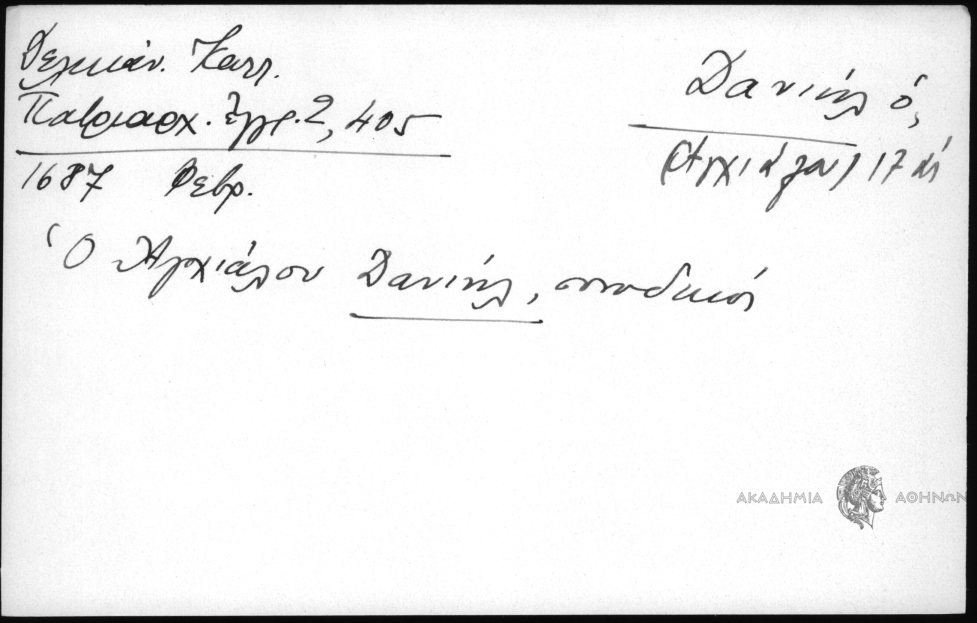 Δελικάν. Καλλ.
Πατριαρχ. Ἔγγρ. 2, 405
1687 Φεβρ.
Δανιήλ ὁ,
(Ἀγχιάλου) 17 αἰ
Ὁ Ἀγχιάλου Δανιήλ, συνοδικός
ΑΚΑΔΗΜΙΑ ΑΘΗΝΩΝ